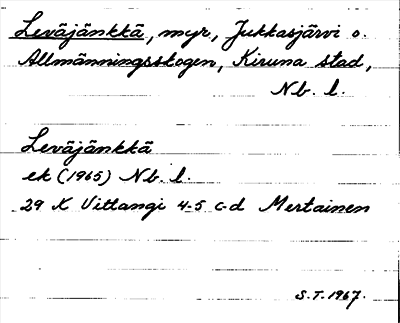 Leväjänkkä, myr, Jukkasjärvi o.
Allmänningsskogen, Kiruna stad,
Nb. l.
Leväjänkkä
ek (1965) Nb. l.
29 K Vittangi 4-5 c-d Mertainen
S.T. 1967.